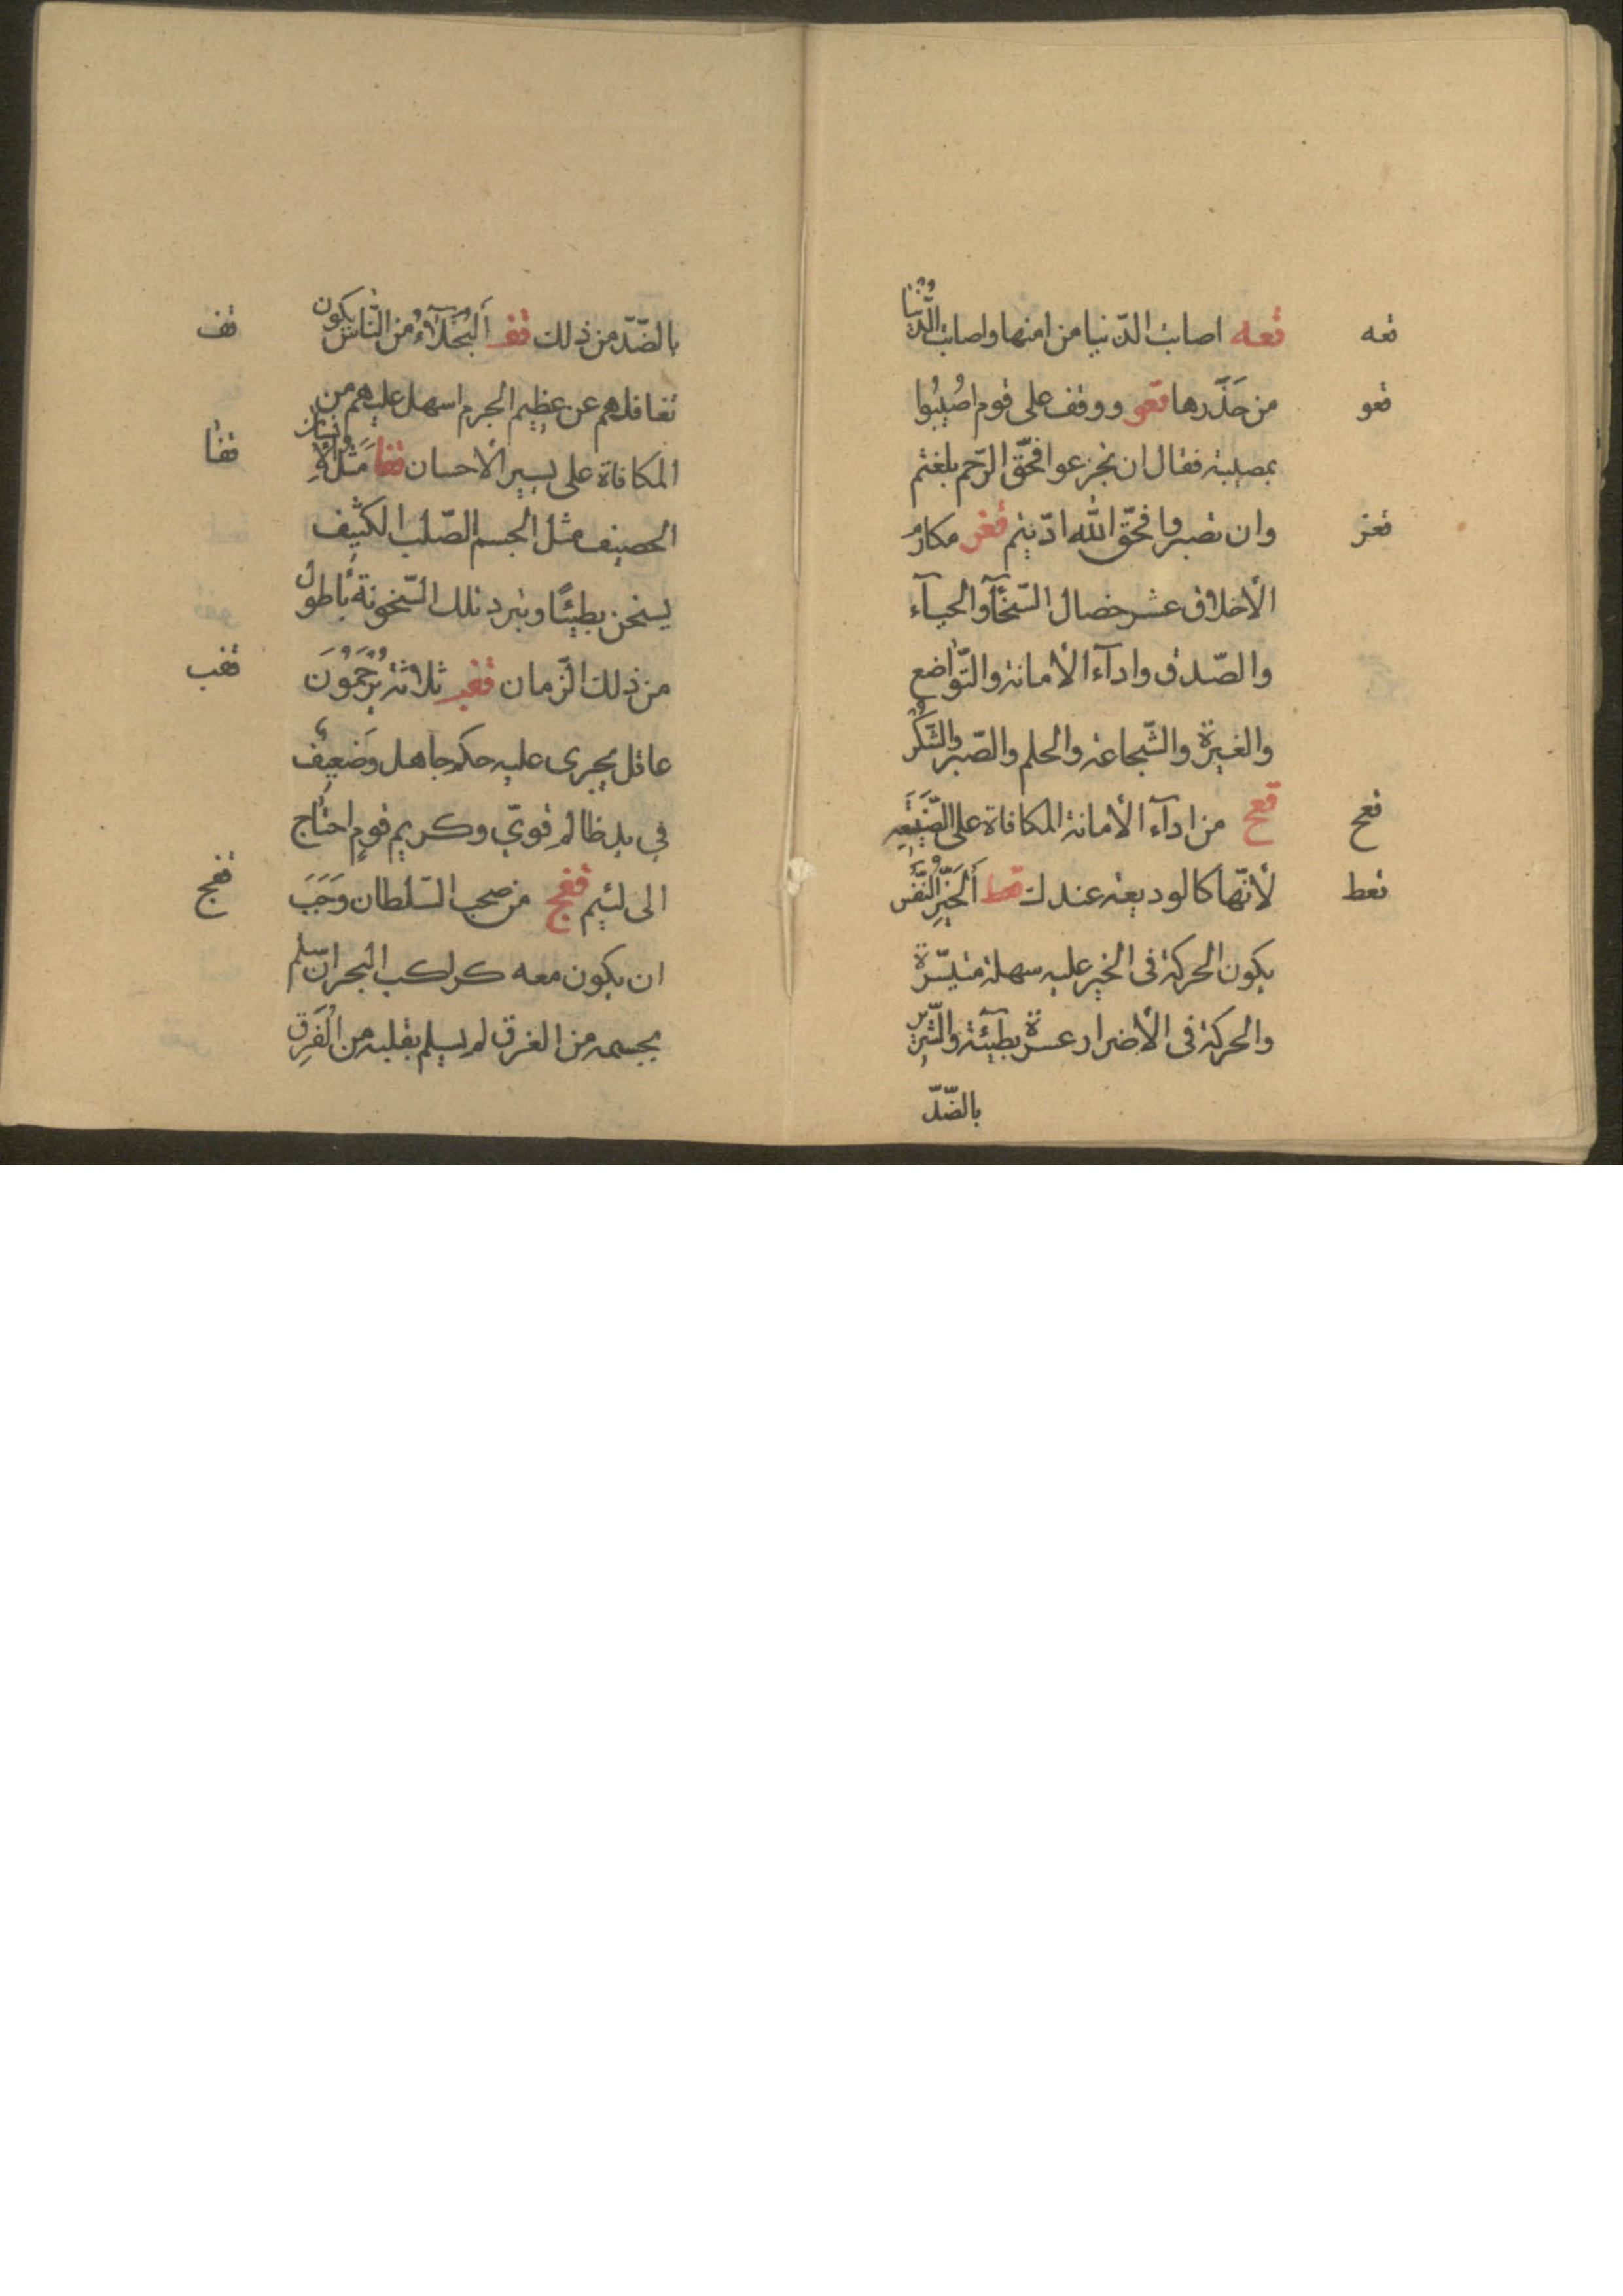 قعه قعه اصابت الدّنيا من امنها واصابت الدُّنيا
قعو من حَذَّرها قعو ووقف على قوم اُصُيبُوا
بمصيبة فقال ان تجزعوا فحقّ الرّحم بلغتم
قعز وان تصبروا فحقّ الله ادّيتم قعز مكارمُ
الأخلاق عشر خصال السّخآء والحيآء
والصّدق وادآء الأمانة والتّواضع
والغيرة والشّجاعة والحلم والصّبر والشّكرُ
قعح قعح من ادآء الأمانة المكافاة على الصَّنيعَةِ
قعط لأنّها كالوديعة عندك قعط اَلخيِّرُ النَّفْس
يكون الحركة فى الخير عليه سهلة متيسّرة
والحركة فى الأضرار عسرة بطيئة والشّرّير
بالضّدّ
قف بالضّدّ من ذلك قف اَلْبُخَلآءُ من النّاس يكون
تغافلهم عن عظيم الجرم اسهل عليهم من
قفا المكافاة على يسير الأحسان قفا مَثَلُ الأِنسان
الحصيف مثل الجسم الصّلب الكثيف
يسخن بطيئًا وتبرد تلك السّخونة بأطول
قفب من ذلك الزّمان قفب ثلاثة يُرْحَمُونَ
عاقل يجرى عليه حكم جاهل وَضعيفٌ
في يد ظالم قوىّ وكريم قومٍ احتاج
قفج الى لئيم قفج من صحب السّلطان وَجَبَ
ان يكون معه كراكب البحر ان سلم
بجسمه من الغرق لم يسلم بقلبه من الْفَرِق